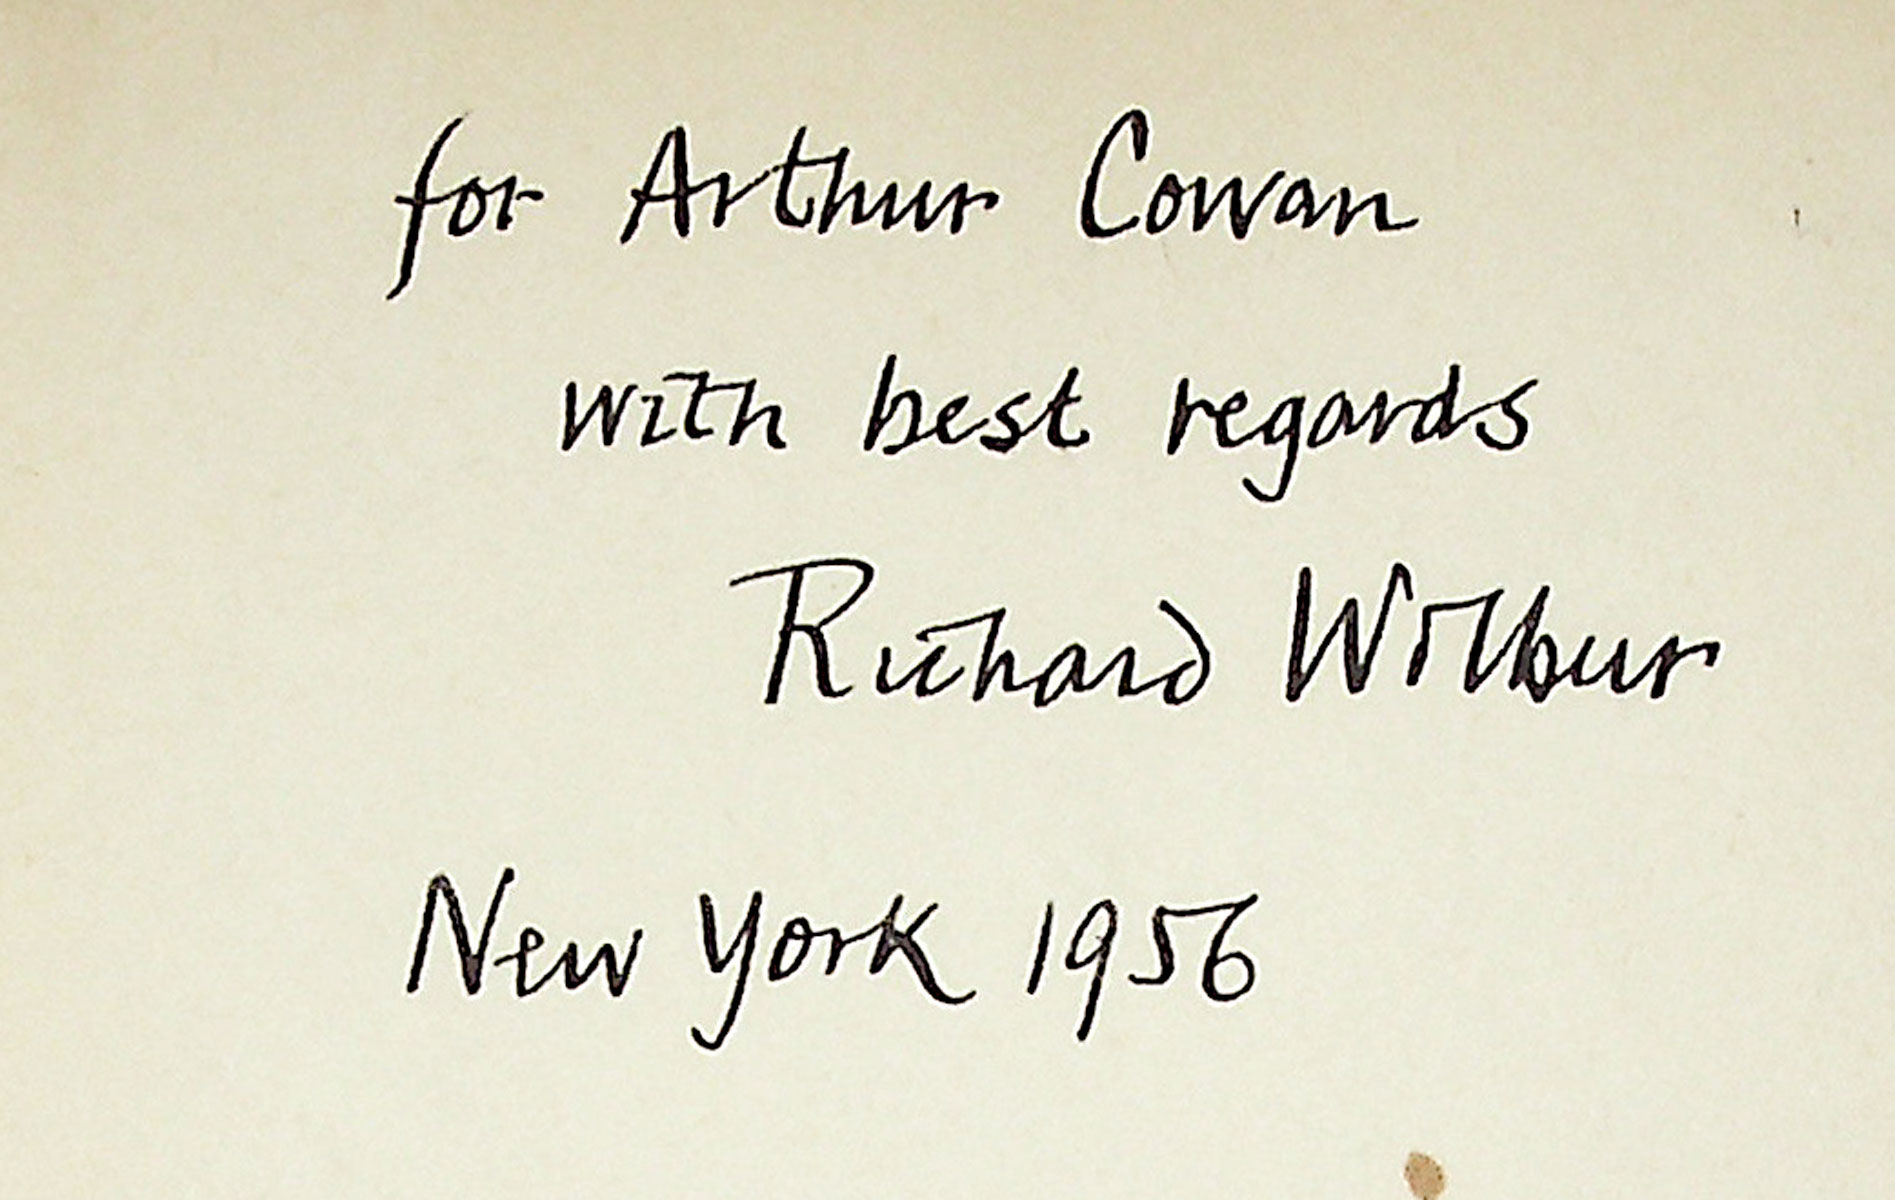 for Arthur Cowan
with best regards
Richard Wilbur
New York 1956